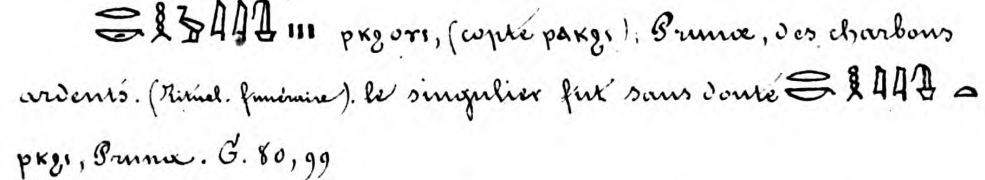 𓂋𓎡𓎛𓇋𓇋𓊮𓏥 ⲣⲕϩⲟⲩⲓ, (copte ⲣⲁⲕϩⲓ); Prunæ, des charbons
ardents. (Rituel. funéraire). le singulier fut sans doute 𓂋𓎡𓎛𓇋𓇋𓊮𓏏
ⲣⲕϩⲓ, Pruna. G. 80, 99